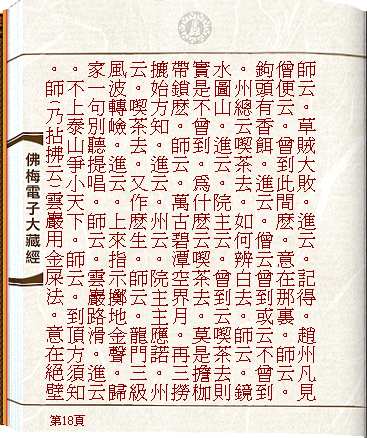 師云。草賊大敗。進云。記得。趙州凡見
僧便云。曾到此間麼。意在那裏。師云。
鉤頭有香餌。進云。僧云曾到或云不曾到
。州總云喫茶去。如何辨白去。師云。鏡
水圖山。進云。院主云。曾到云喫茶去則
實是不曾到。爲什麼云喫茶去。莫是擔枷
帶鎖麼。師云。萬古碧潭空界月。再三撈
摝始方知。進云。州云。院主主應諾。州
云。喫茶去。又作麼生。師云。龍門三級
風波轉嶮。進云。上來指示擲地金聲。歸
家一句別聽提唱。師云。雲巖路滑。進云
。不上泰山爭小天下。師云。到頂方須知
。師(乃拈拂云)雲巖用金屎法。意在絕壁
佛梅電子大藏經
第18頁